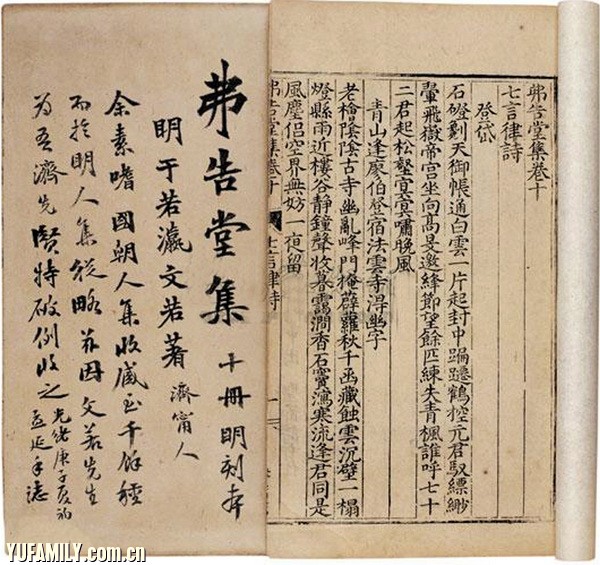 弗告堂集卷十
七言律詩
登岱
石磴剷天御帳通白雲一片起封中蹁躚鶴控元君馭縹緲
翬飛嶽帝宮坐向高旻邀絳節望餘匹練失青楓誰呼七十
二君起松壑冥冥嘯晚風
青山逢廖伯登宿法雲寺得幽字
老檜陰陰古寺幽亂峰門掩薜蘿秋千函藏蝕雲沉壁一榻
燈縣雨近樓谷靜鐘聲收暮靄澗香石竇瀉寒流逢君同是
風塵侶空界無妨一宿留
弗告堂集卷十 七言律詩 一
弗告堂集 十冊明刻本
明于若瀛文若著 濟甯人
余素嗜國朝人集收藏至千餘種
而於明人集從略茲因文若先生
為吾濟先賢特破例收之光緒庚子夏初
孟延手誌
YUFAMILY.com.cn